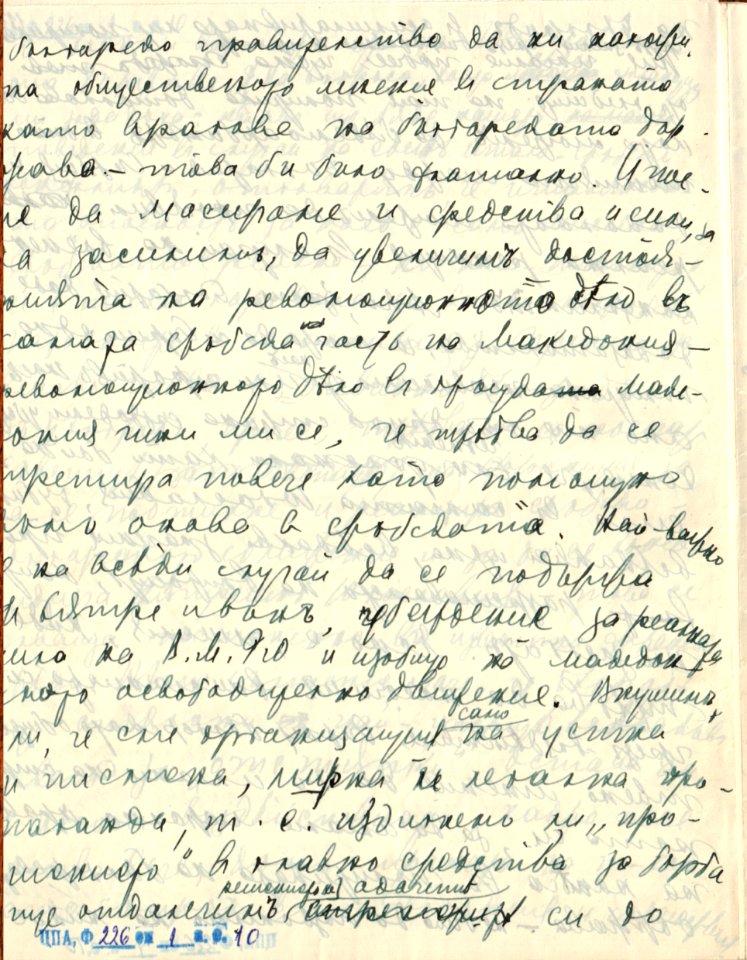 българско правителство да ни
на общественото мнение в страната
като врагове на българската дър-
жава. – това би било фатално. Ц
да масираме и средства и сили, за
да засилимъ, да увеличимъ достоя-
нията на революционното дѣло въ
самата сръбска часть на Македония –
революционното дѣло в гръцката Маке-
дония чини ми се, че трѣбва да се
третира повече като помощно
онова в сръбската. Най-важно
е на всѣки случай да се подържа
и вътре и вънъ, убеждение за реалната
сила на В.М.Р.О и изобщо на македон-
ското освободително движение. Внушимъ
ли, че сме организация само на устна
и писмена, мирна и легална про-
паганда, т. е. издигнемъ ли „про-
" в главно средство за борба
ще отдалечимъ си до
ЦПА, Ф 226 оп 1 а. е. 10